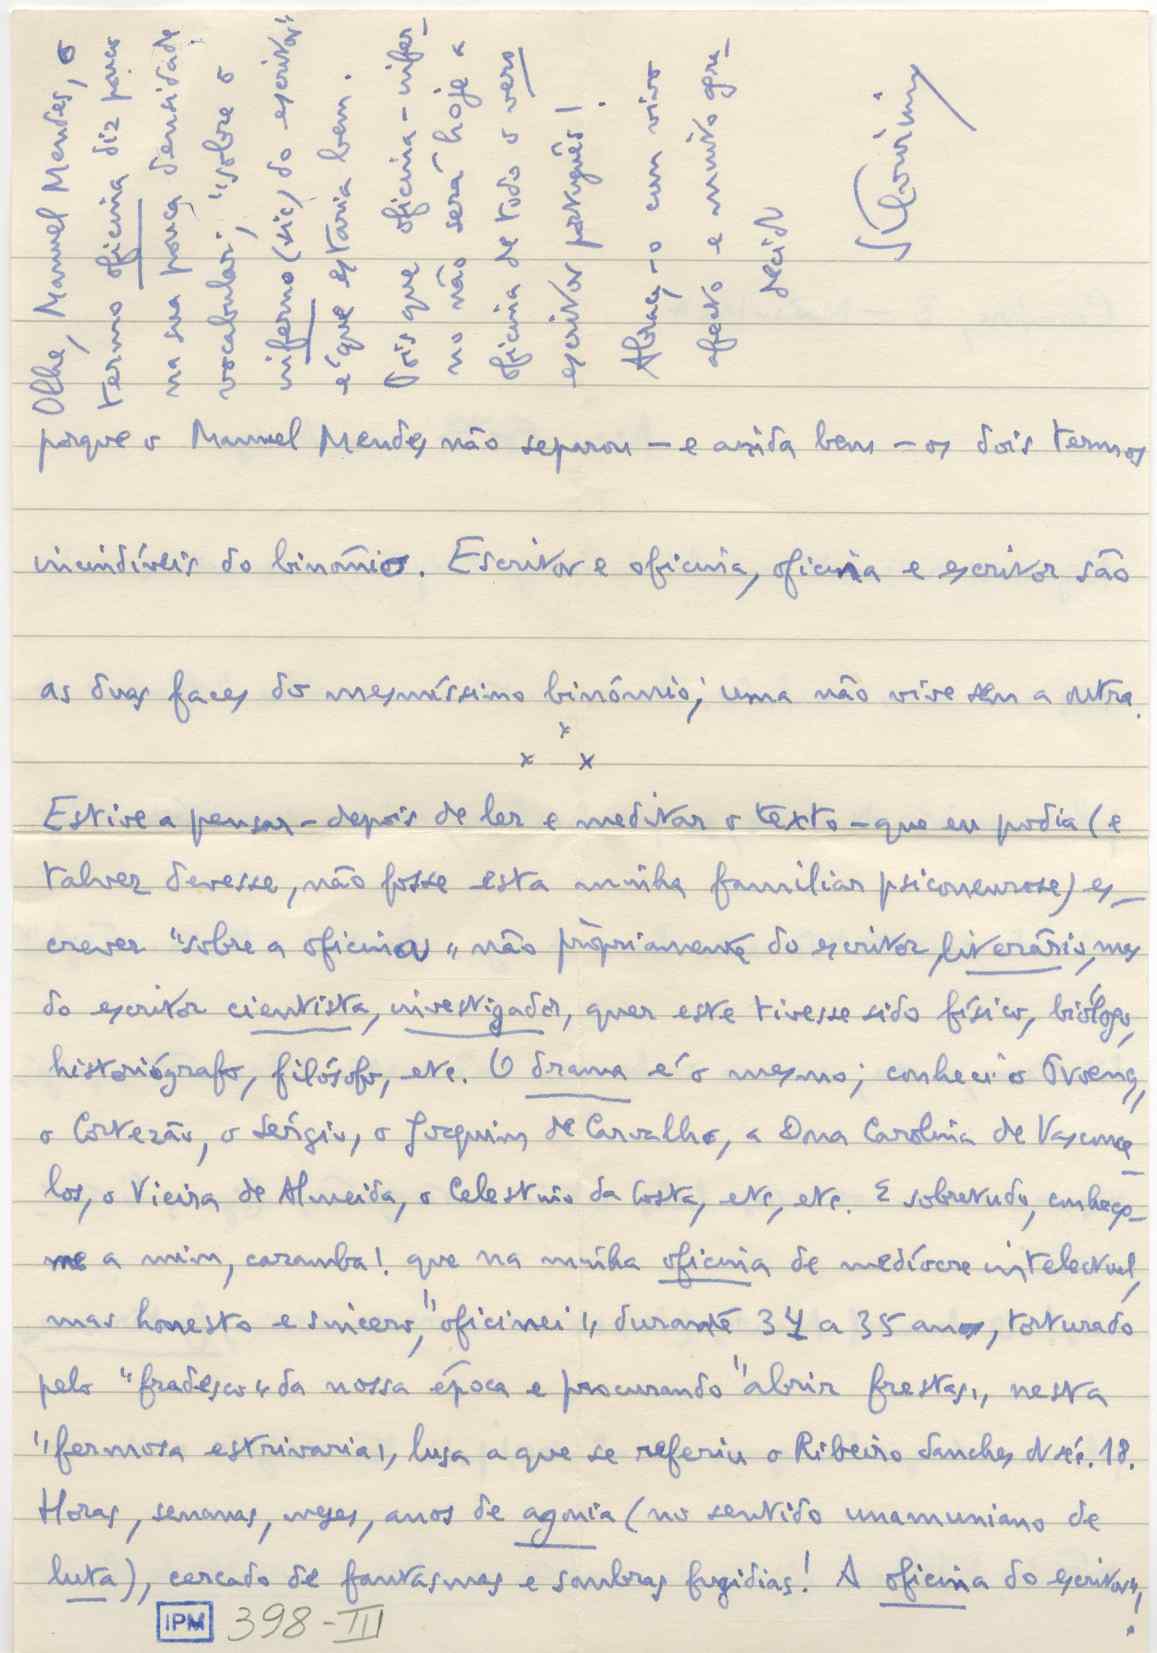 porque o Manuel Mendes não separou — e ainda bem — os dois termos
incindíveis do binômio. Escritor e oficina, oficina e escritor são
as duas faces do mesmíssimo binômio; uma não vive sem a outra.
x
x x
Estive a pensar — depois de ler e meditar o texto — que eu podia (e
talvez devesse, não fosse esta minha familiar psiconeurose) es-
crever "sobre a oficina" não pròpriamente do escritor literário, mas
do escritor cientista, investigador, quer este tivesse sido físico, biólogo,
historiógrafo, filósofo, etc. O drama é o mesmo; conheci o Proença,
o Cortezão, o Sérgio, o Joaquim de Carvalho, a Dna Carolina de Vasconce-
los, o Vieira de Almeida, o Celestino da Costa, etc, etc. E sobretudo, conheço-
me a mim, caramba! que na minha oficina de medíocre intelectual,
mas honesto e sincero, "oficinei" durante 34 a 35 anos, torturado
pelo "fradesco" da nossa época e procurando "abrir frestas", nesta
"fermosa estrivaria", lusa a que se referiu o Ribeiro Sanches no séc. 18.
Horas, semanas, meses, anos de agonia (no sentido unamuniano de
luta), cercado de fantasmas e sombras fugidias! A oficina do escritor",!
Olhe, Manuel Mendes, o
termo oficina diz pouco
na sua pouca densidade
vocabular; "sobre o
inferno (sic) do escritor"
é que estaria bem.
Pois que oficina-infer-
no não será hoje a
oficina de todo o vero
escritor português!
Abraça-o com vivo
afecto e muito agra-
decido
IPM 398-III